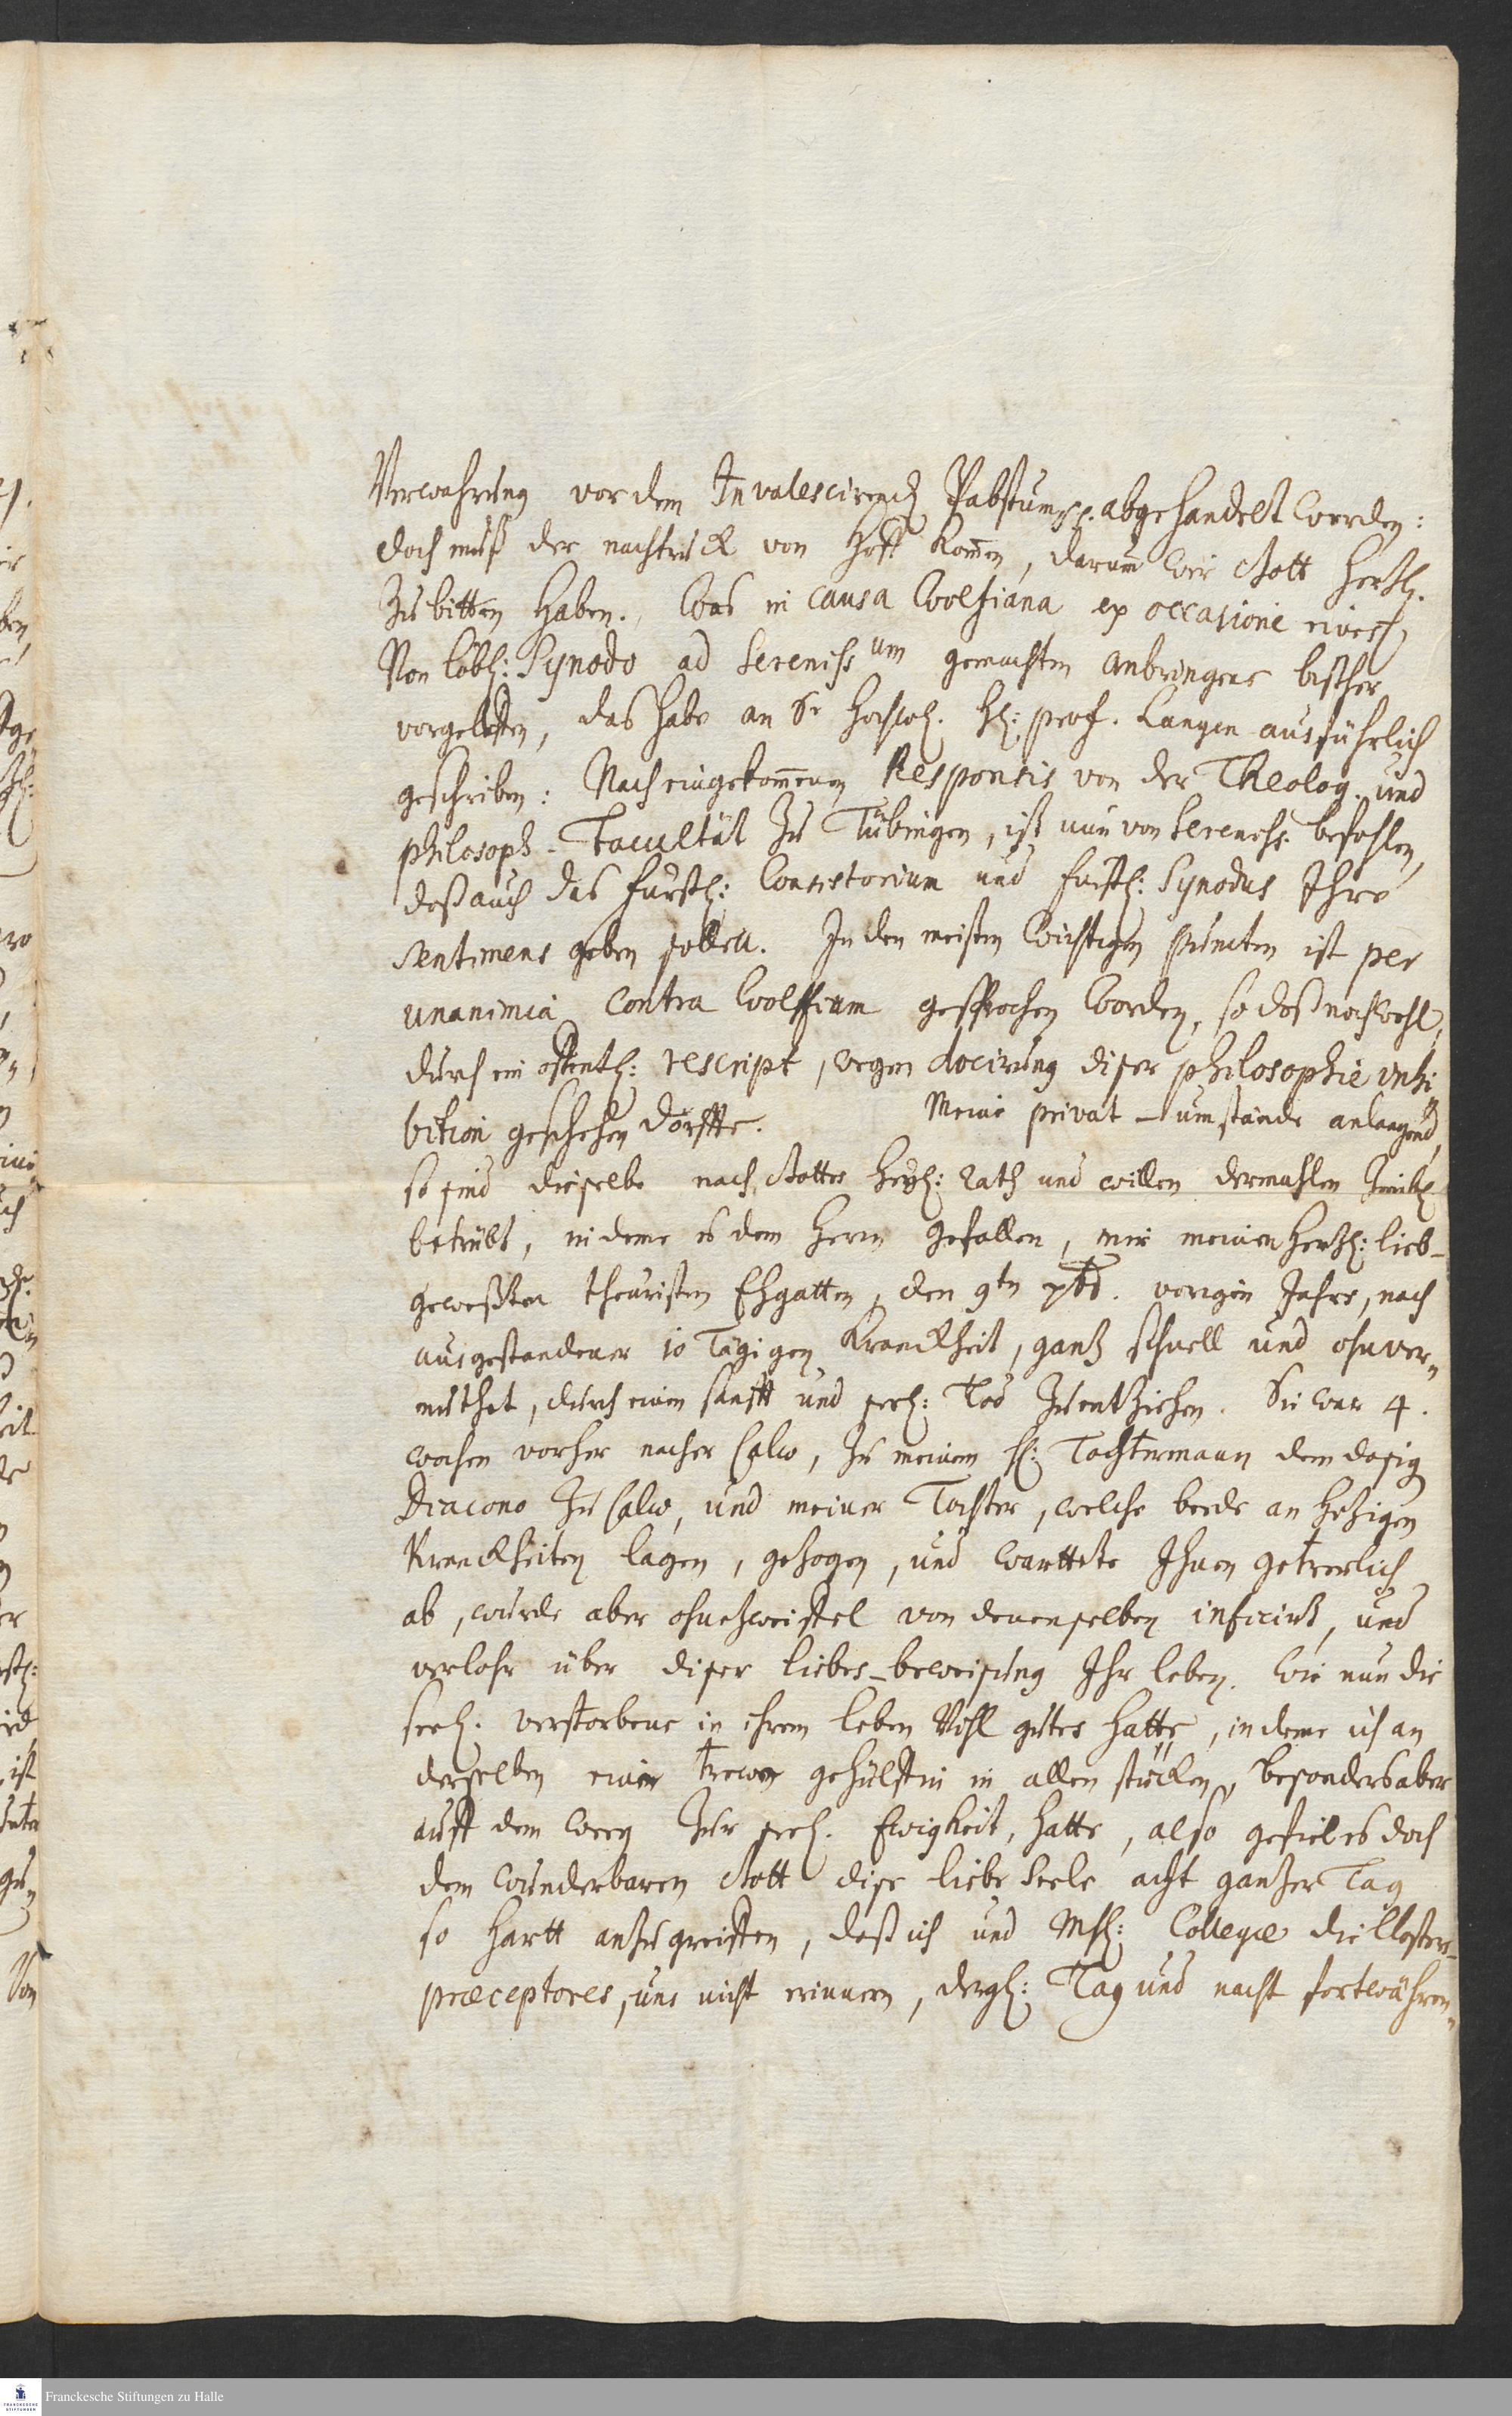 Verwahrung vor dem Invalescirend Pabstum pp. abgehandelt werden:
doch muß der nachtruck von Hoff kom̅en, darum̅ wir Gott hertzl.
zu bitten haben. Was in causa Wolfiana ex occasione eines
Von löbl: Synodo ad Sereniss um gemachten Anbringens bißher
vorgeloffen, das habe an Sr Hochw. H: prof. Langen ausführlich
geschriben: Nach eingekom̅enen Responsis von der Theolog. und
philosoph-Facultät zu Tübingen, ist nun von Sereniss. befohlen,
daß auch das fürstl: Consistorium und fürstl: Synodus Ihre
sentimens geben sollen. In den meisten wichtigen Puncten ist per
unanimia contra Wolffium gesprochen worden, so daß noch wohl,
durch ein offentl: rescript, wegen docirung diser philosophie inhi„
bition geschehen dörffte. Meine privat-umstände anlangend,
so sind dieselbe nach Gottes heyl: Rath und willen dermahlen
betrübt, in deme es dem Herrn gefallen, mir meinen hertzl: lieb-
geweßten theuristen Ehgatten, den 9tn xbr. vorigen Jahrs, nach
ausgestandener 10 Tägigen Kranckheit, gantz schnell und ohnver„
muthet, durch einen sanfft und seel: Tod zu entziehen. Sie war 4.
wochen vorher nacher Calw, zu meinem H: Tochtermann dem dasig
Diacono zu Calw, und meiner Tochter, welche beede an hitzigen
Kranckheiten lagen, gezogen, und warttete Ihnen getreulich
ab, wurde aber ohnezweiffel von denenselben inficirt, und
verlohr über diser liebes-beweisung Ihr leben. Wie nun die
seel. verstorbene in ihrem leben Vihl gutes hatte, in deme ich an
derselben eine trewe gehülffin in allen stücken, besonders aber
auff dem weeg zur seel. Ewigkeit, hatte, also gefiel es doch
dem wunderbaren Gott dise liebe Seele acht gantzer Tag
so hartt anzugreiffen, daß ich und Mh: Collegæ die Closters-
præceptores, uns nicht erinnern, dergl: Tag und nacht fortwähren„
Franckesche Stiftungen zu Halle